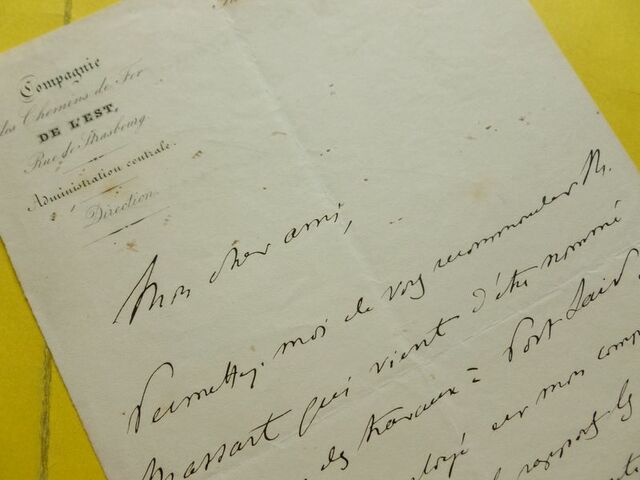 Compagnie
des Chemins de Fer
DE L'EST,
Rue de Strasbourg.
Administration centrale.
Direction.
Mon cher ami,
Permettez moi de vous recommander M.
Massart qui vient d'être nommé
des travaux à Port Said
sur mon
rapport les